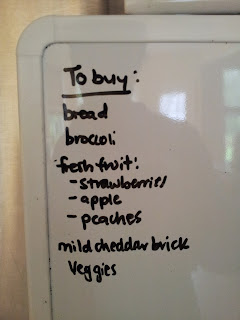 To buy:
bread
broccoli
fresh fruit:
- strawberries
- apple
- peaches
mild cheddar brick
Veggies